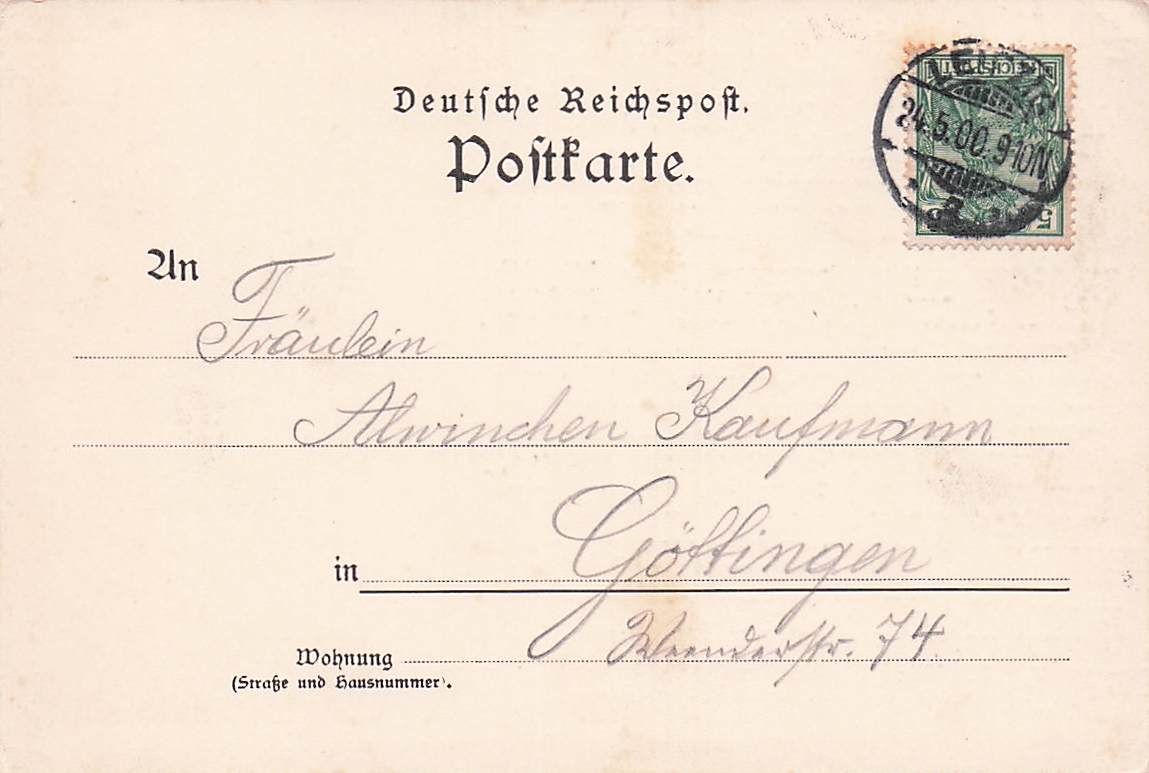 Deutsche Reichspost.
Postkarte.
LEIPZIG
24.5.00.9-10N
REICHSPOST
5
An
Fräulein
Alwinchen Kaufmann
in Göttingen
Weenderstr. 74
Wohnung
(Straße und Hausnummer).